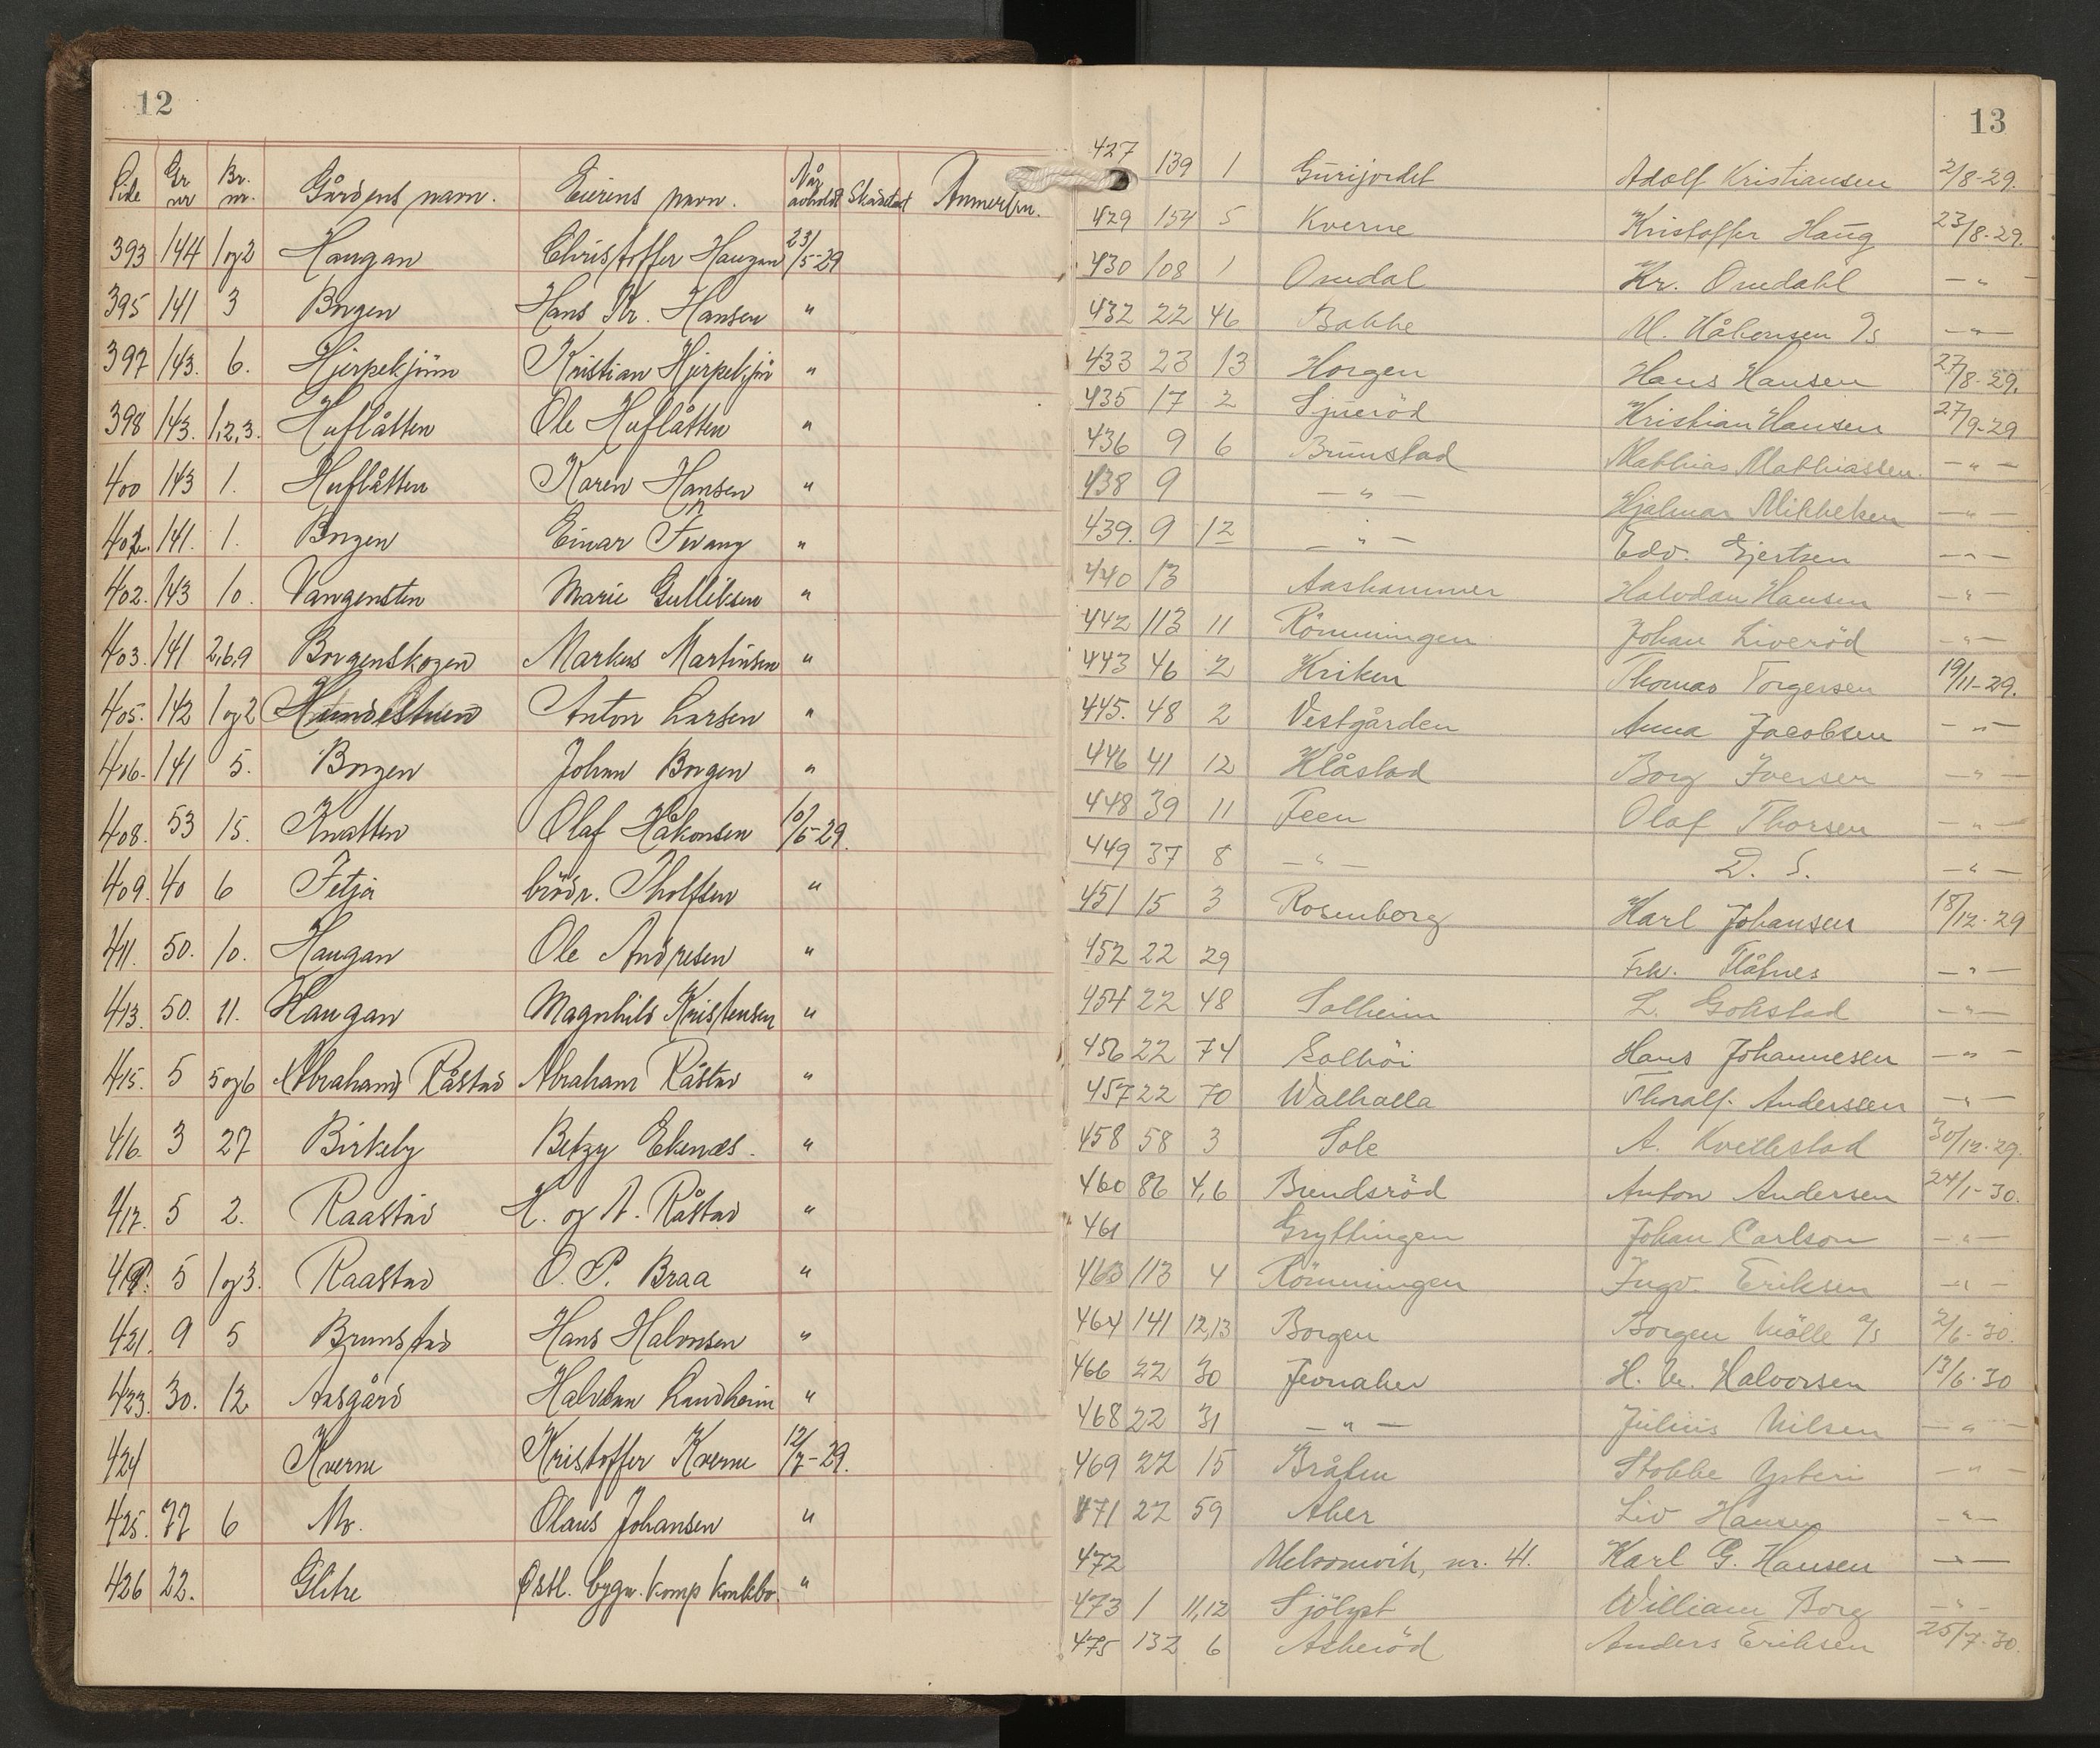 12
Side Gr nr Br. nr. Gårdens navn. Eierens navn. Når avholdt Skadetakst Anmerkn.
393 144 1 og 2 Haugan Christoffer Haugan 23/5-29
395 141 3 Borgen Hans Kr. Hansen "
397 143. 6. Hjerpekjønn Kristian Hjerpekjøn "
398 143. 1,2,3. Huflåtten Ole Huflåtten "
400 143 1. Huflåtten Karen Hansen "
402. 141. 1. Borgen Einar Fevang "
402. 143 10. Vangensten Marie Gulliksen "
403. 141 2,6,9 Borgenskogen Markus Martinsen "
405. 142 1 og 2 Anton Larsen "
406. 141 5. Borgen Johan Borgen "
408. 53 15. Knatten Olaf Håkonsen 10/6-29.
409. 40 6 Fetja brödr. Tholfsen "
411. 50. 10. Haugan Ole Andresen "
413. 50. 11. Haugan Magnhild Kristensen "
415. 5 5 og 6 Abrahams Råstad Abraham Råstad "
416. 3 27 Birkeby Betzy Ekenæs. "
417. 5 2. Raastad H. og A. Råstad "
418. 5 1 og 3. Raastad O. P. Braa "
421. 9 5 Brunstad Hans Halvorsen "
423. 30. 12. Aasgård Halvdan Lundheim "
424 Kverne Kristoffer Kverne 12/7-29.
425. 77 6 Mo. Olaus Johansen "
426 22. Glitre Østl. bygn. komp konkbo. "
13
427 139 1 Gurijordet Adolf Kristiansen 2/8-29.
429 154 5 Kverne Kristoffer Haug 23/8-29.
430 108 1 Omdal Kr. Omdahl -"-
432 22 46 Bakke M. Håkonsen -"-
433 23 13 Horgen Hans Hansen 27/8-29.
435 17 2 Sjueröd Kristian Hansen 27/9-29
436 9 6 Brunstad Mathias Mathiassen. -"-
438 9 -"- Hjalmar Mikkelsen -"-
439. 9 12 -"- Edv. Gjertsen -"-
440 13 Aashammer Halvdan Hansen -"-
442 113 11 Rönningen Johan Liveröd -"-
443 46 2 Kriken Thomas Torgersen 19/11-29.
445. 48 2 Vestgården Anna Jacobsen -"-
446 41 12 Klåstad Borg Iversen -"-
448 39 11 Feen Olaf Thorsen -"-
449 37 8 -"- D. S. -"-
451 15 3 Rosenborg Karl Johansen 18/12-29
452 22 29 Frk. Flåtnes -"-
454 22 48 Solheim L. Gokstad -"-
456 22 74 Solhöi Hans Johannesen -"-
457 22 70 Walhalla Thoralf Anderssen -"-
458 58 3 Sole A. Kvellestad 30/12-29.
460 86 4,6 Bundsröd Anton Andersen 24/1-30.
461 Gryttingen Johan Carlson -"-
463 113 4 Rönningen Ingv. Eriksen -"-
464 141 12,13 Borgen Borgen Mölle A/S 2/6-30.
466 22 30 Jevnaker H. Halvorsen 13/6-30
468 22 31 -"- Julius Nilsen -"-
469 22 15 Bråten Stokke Ysteri -"-
471 22 59 Aker Liv Hansen -"-
472 Melsomvik, nr. 41. Karl G. Hansen -"-
473 1 11,12 Sjölyst William Borg -"-
475 132 6 Askeröd Anders Eriksen 25/7-30.